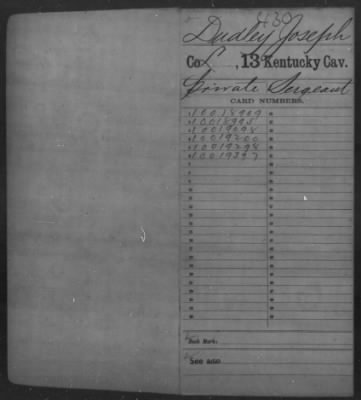 430
Dudley Joseph
Co L, 13 Kentucky Cav.
Private Sergeant
CARD NUMBERS.
10018909
10018995
10019098
10019200
10019298
10019397
Book Mark:
See also